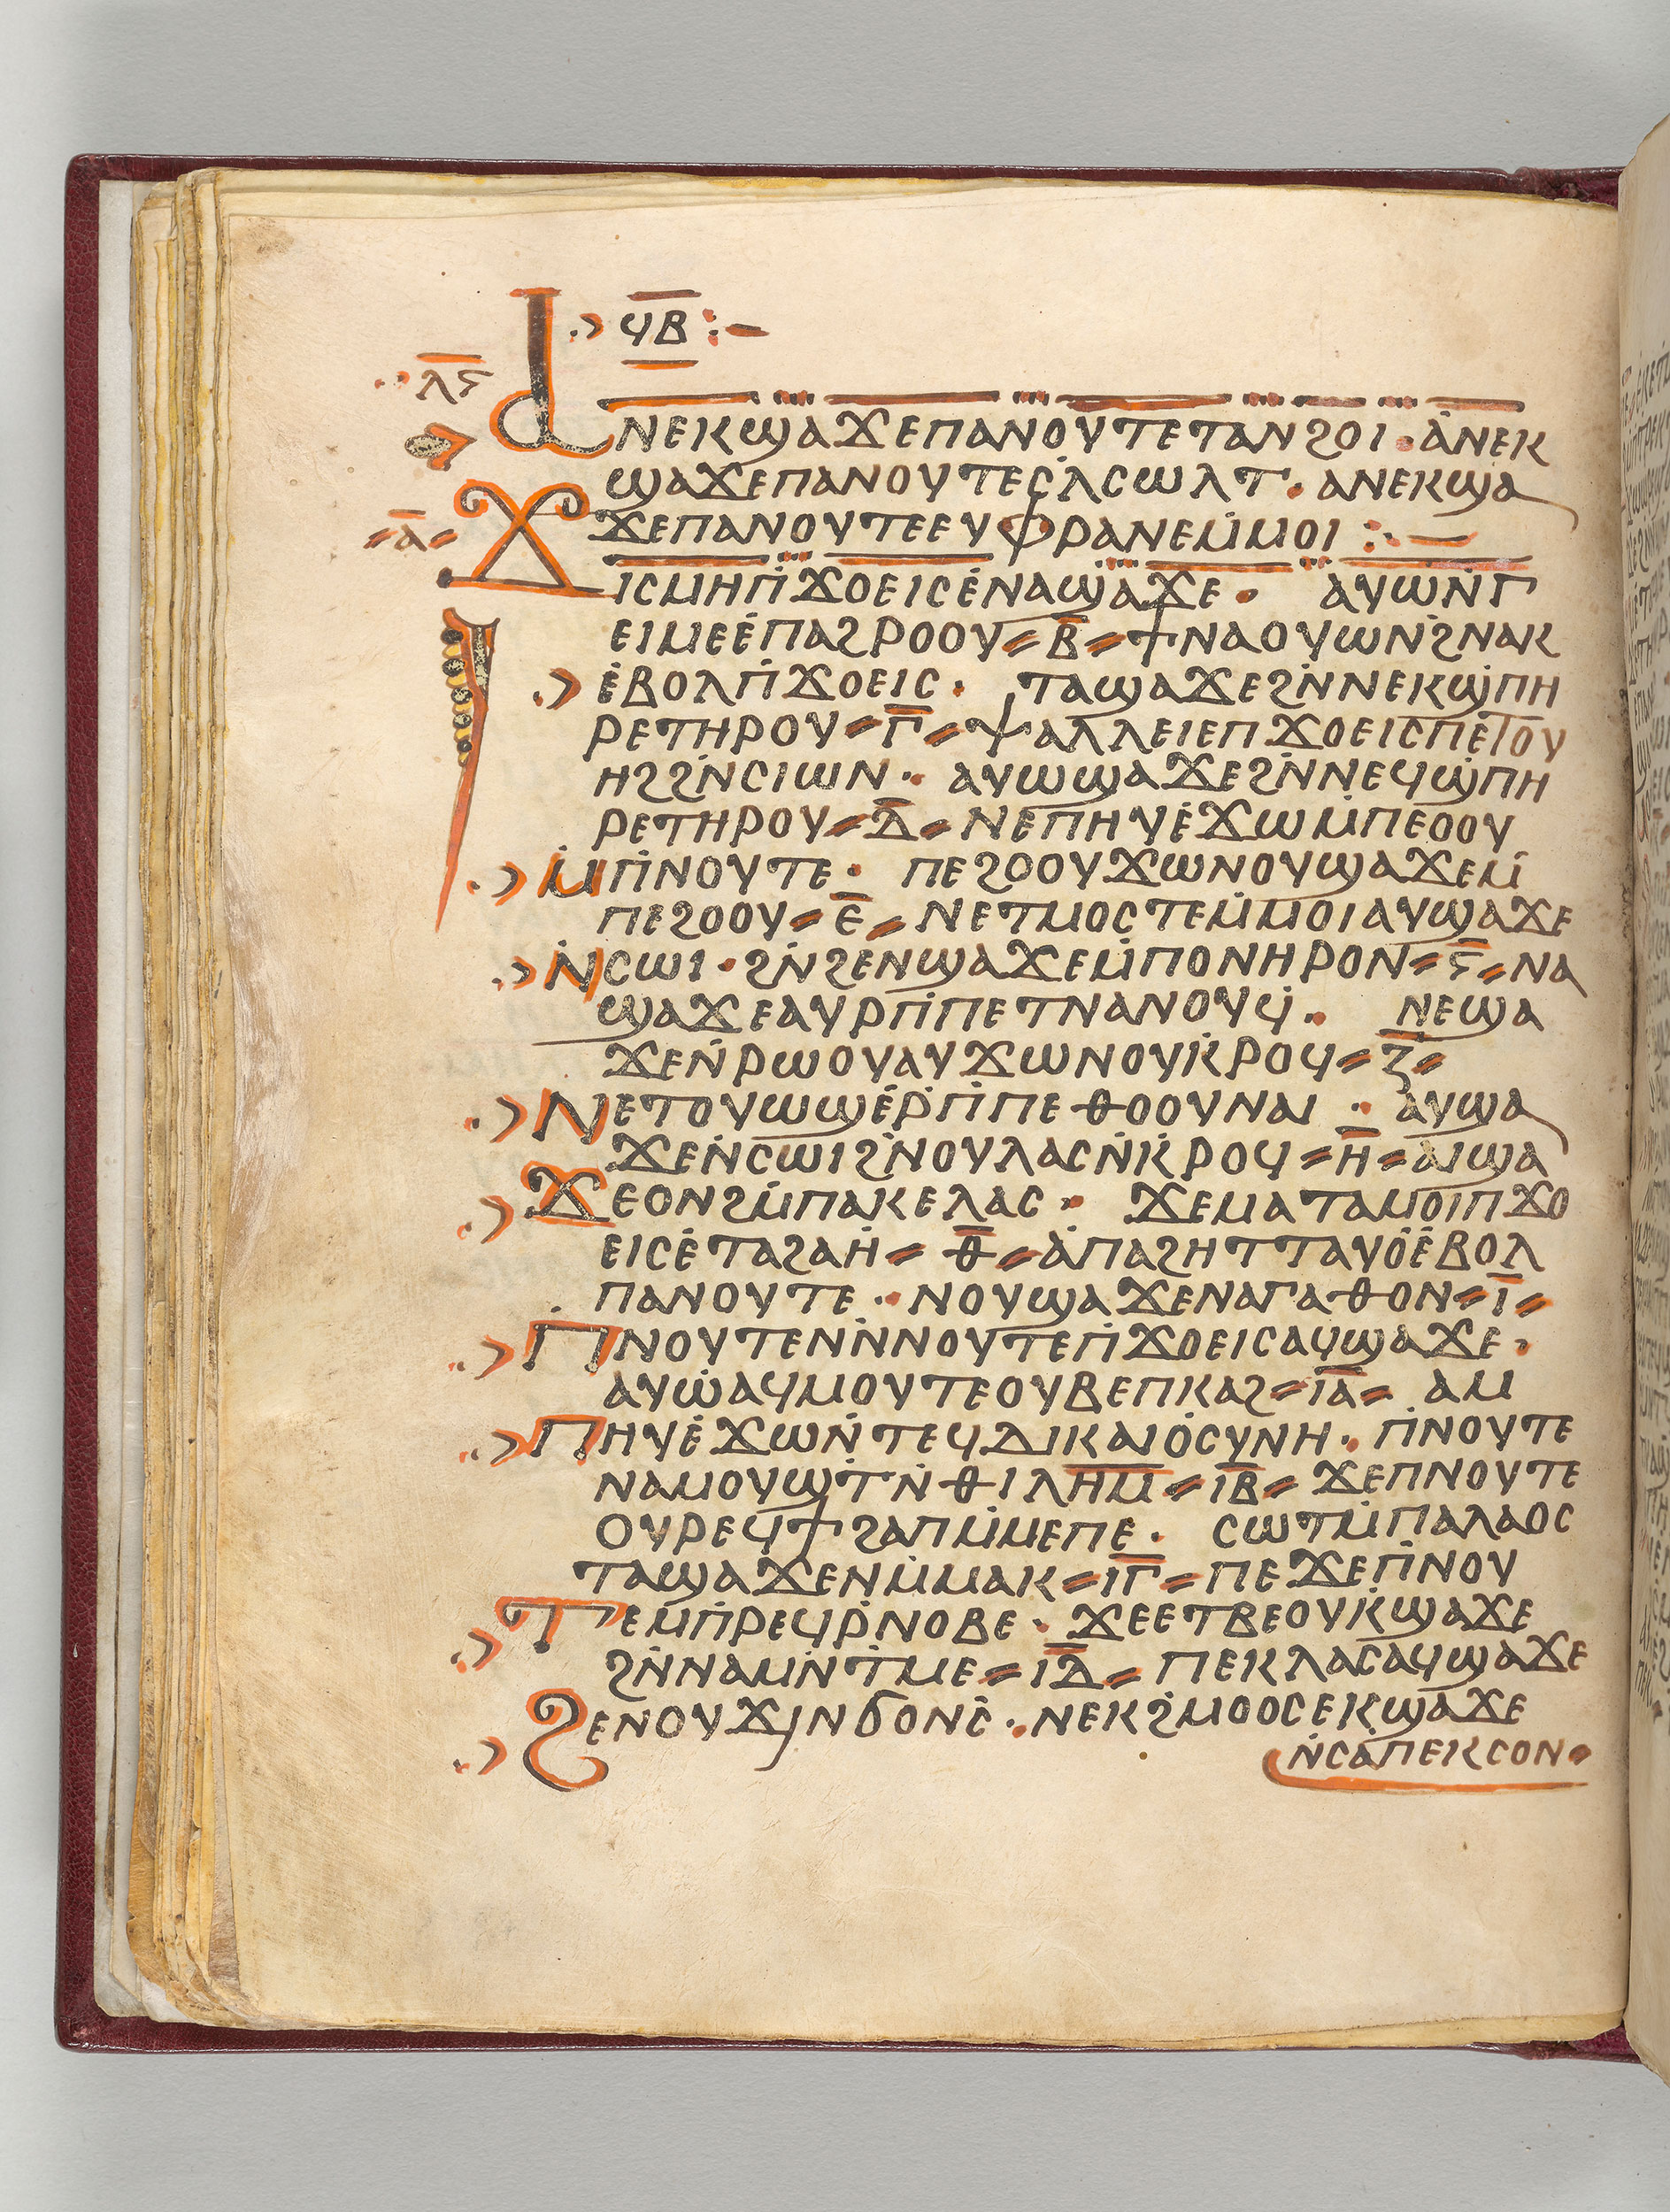 ϥⲃ
ⲗⲋ
ⲁⲛⲉⲕϣⲁϫⲉⲡⲁⲛⲟⲩⲧⲉⲧⲁⲛϩⲟⲓ · ⲁ̇ⲛⲉⲕ
ϣⲁϫⲉⲡⲁⲛⲟⲩⲧⲉⲥ̇ⲗⲥⲱⲗⲧ · ⲁⲛⲉⲕϣⲁ
ϫⲉⲡⲁⲛⲟⲩⲧⲉⲉⲩⲫⲣⲁⲛⲉⲙ̇ⲙⲟⲓ :·—
ⲁ̅
ϫⲓⲥⲙⲏⲡ̇ϫⲟⲉⲓⲥⲉ̇ⲛⲁϣⲁϫⲉ · ⲁⲩⲱⲛ̇ⲅ
ⲉⲓⲙⲉⲉ̇ⲡⲁϩⲣⲟⲟⲩ = ⲃ̅ = ϯⲛⲁⲟⲩⲱⲛϩ̇ⲛⲁⲕ
ⲉ̇ⲃⲟⲗⲡ̇ϫⲟⲉⲓⲥ · ⲧⲁϣⲁϫⲉϩⲛ̇ⲛⲉⲕϣ̇ⲡⲏ
ⲣⲉⲧⲏⲣⲟⲩ = ⲅ̅ = ⲯⲁⲗⲗⲉⲓⲉⲡϫⲟⲉⲓⲥⲡⲉⲧⲟⲩ
ⲏϩϩⲛ̇ⲥⲓⲱⲛ · ⲁⲩⲱϣⲁϫⲉϩⲛ̇ⲛⲉϥϣ̇ⲡⲏ
ⲣⲉⲧⲏⲣⲟⲩ = ⲇ̅ = ⲛⲉⲡⲏⲩⲉ̇ϫⲱⲙ̇ⲡⲉⲟⲟⲩ
ⲙ̇ⲡ̇ⲛⲟⲩⲧⲉ · ⲡⲉϩⲟⲟⲩϫⲱⲛⲟⲩϣⲁϫⲉⲙ̇
ⲡⲉϩⲟⲟⲩ = ⲉ̅ = ⲛⲉⲧⲙⲟⲥⲧⲉⲙ̇ⲙⲟⲓⲁⲩϣⲁϫⲉ
ⲛ̇ⲥⲱⲓ · ϩⲛ̇ϩⲉⲛϣⲁϫⲉⲙ̇ⲡⲟⲛⲏⲣⲟⲛ = ⲋ̅ = ⲛⲁ
ϣⲁϫⲉⲁⲩⲣⲡ̇ⲡⲉⲧⲛⲁⲛⲟⲩϥ̇ · ⲛⲉϣⲁ
ϫⲉⲛ̇ⲣⲱⲟⲩⲁⲩϫⲱⲛⲟⲩⲕ̇ⲣⲟϥ = ⲍ̅ =
ⲛⲉⲧⲟⲩⲱϣⲉ̇ⲣ̇ⲡ̇ⲡⲉⲑⲟⲟⲩⲛⲁⲓ · ⲁⲩϣⲁ
ϫⲉⲛ̇ⲥⲱⲓϩⲛ̇ⲟⲩⲗⲁⲥⲛ̇ⲕ̇ⲣⲟϥ = ⲏ̅ = ⲁⲓϣⲁ
ϫⲉⲟⲛϩⲙ̇ⲡⲁⲕⲉⲗⲁⲥ · ϫⲉⲙⲁⲧⲁⲙⲟⲓⲡϫⲟ
ⲉⲓⲥⲉ̇ⲧⲁϩⲁⲏ̇ = ⲑ̅ = ⲁ̇ⲡⲁϩⲏⲧⲧⲁⲩⲟ̇ⲉ̇ⲃⲟⲗ
ⲡⲁⲛⲟⲩⲧⲉ · ⲛⲟⲩϣⲁϫⲉⲛⲁⲅⲁⲑⲟⲛ = ⲓ̅ =
ⲡ̇ⲛⲟⲩⲧⲉⲛⲛ̇ⲛⲟⲩⲧⲉⲡ̇ϫⲟⲉⲓⲥⲁϥϣⲁϫⲉ ·
ⲁⲩⲱ̇ⲁϥⲙⲟⲩⲧⲉⲟⲩⲃⲉⲡⲕⲁϩ = ⲓ̅ⲁ̅ = ⲁⲙ
ⲡⲏⲩⲉ̇ϫⲱⲛ̇ⲧⲉϥⲇⲓⲕⲁⲓⲟ̇ⲥⲩⲛⲏ · ⲡ̇ⲛⲟⲩⲧⲉ
ⲛⲁⲙⲟⲩϣⲧ̇ⲛ̇ⲑⲓⲗ̅ⲏ̅ⲙ̅ = ⲓ̅ⲃ̅ = ϫⲉⲡⲛⲟⲩⲧⲉ
ⲟⲩⲣⲉϥϯϩⲁⲡⲙ̇ⲙⲉⲡⲉ · ⲥⲱⲧⲙ̇ⲡⲁⲗⲁⲟⲥ
ⲧⲁϣⲁϫⲉⲛⲙ̇ⲙⲁⲕ = ⲓ̅ⲅ̅ = ⲡⲉϫⲉⲡ̇ⲛⲟⲩ
ⲧⲉⲙⲡ̇ⲣⲉϥⲣ̇ⲛⲟⲃⲉ · ϫⲉⲉⲧⲃⲉⲟⲩⲕ̇ϣⲁϫⲉ
ϩⲛ̇ⲛⲁⲙⲛ̇ⲧ̇ⲙⲉ = ⲓ̅ⲇ̅ = ⲡⲉⲕⲗⲁⲥⲁϥϣⲁϫⲉ
ϩⲉⲛⲟⲩϫⲓⲛϭⲟⲛⲥ̇ · ⲛⲉⲕϩ̇ⲙⲟⲟⲥⲉⲕϣⲁϫⲉ
ⲛ̇ⲥⲁ̇ⲡⲉⲕⲥⲟⲛ ·